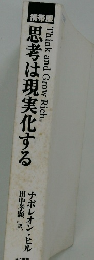 携帯版
思考は現実化する
Think and Grow Rich
ナポレオン・ヒル